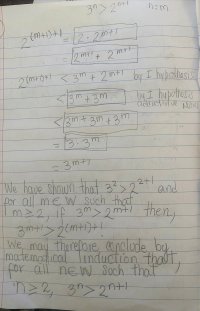 3^n > 2^{n+1} n=m
2^{(m+1)+1} = 2·2^{m+1}
= 2^{m+1} + 2^{m+1}
2^{(m+1)+1} < 3^m + 2^{m+1} by I hypothesis
< 3^m + 3^m by I hypothesis
< 3^m + 3^m + 3^m
= 3·3^m
= 3^{m+1}
We have shown that 3^2 > 2^{2+1} and
for all m∈W such that
m ≥ 2, if 3^m > 2^{m+1} then,
3^{m+1} > 2^{(m+1)+1}.
We may therefore conclude by
mathematical induction that,
for all n∈W such that
n ≥ 2, 3^n > 2^{n+1}